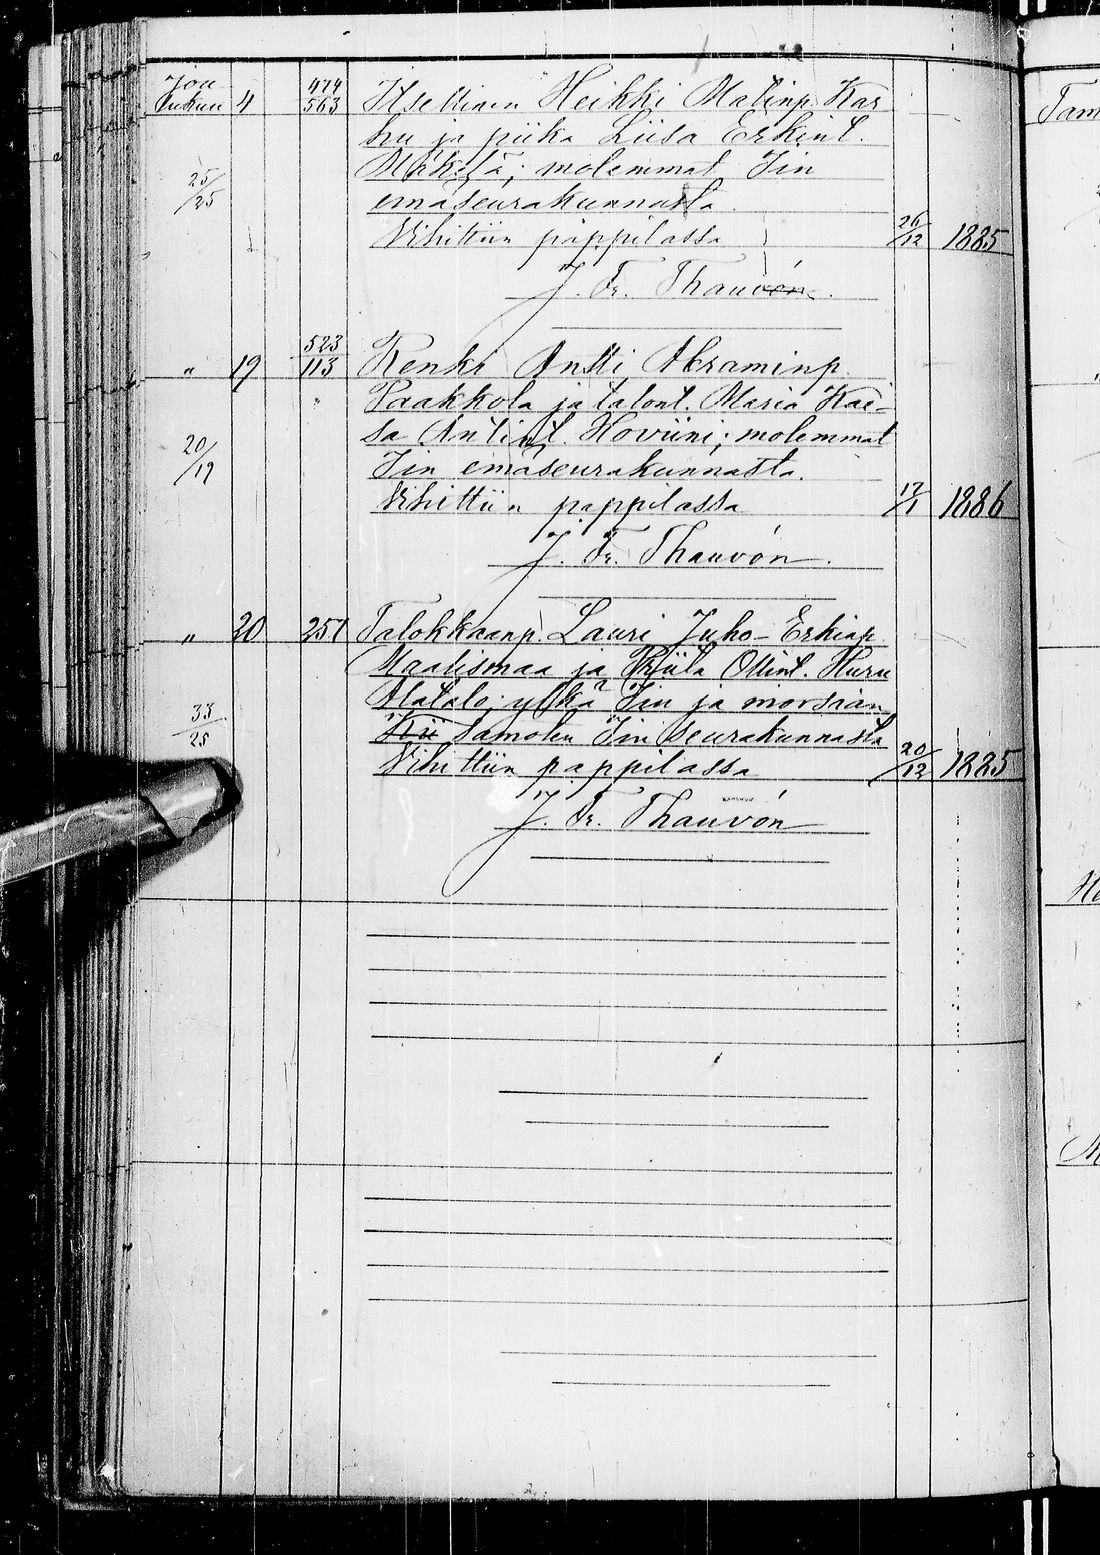 Jou
lukuu 4 474/563 Itsellinen Heikki Matinp. Kar
hu ja piika Liisa Erkint.
25/25 Mikstä; molemmat Iin
emäseurakunnasta.
Vihittiin pappilassa 26/12 1885
J. Fr. Thauvón.
" 19 523/113 Renki Antti Abraminp.
Paakkola ja talont. Maria Kai-
20/19 sa Antint. Hoviini; molemmat
Iin emäseurakunnasta.
Vihittiin pappilassa 17/1 1886
J. Fr. Thauvón.
" 20 251 Talokkaanp. Lauri Juho Erkinp.
Maalismaa ja Priita Ollint. Huru
Matala; ylkä Iin ja morsian
33/25 Kii samoten Iin seurakunnasta
Vihittiin pappilassa 20/12 1885
J. Fr. Thauvón
Tam